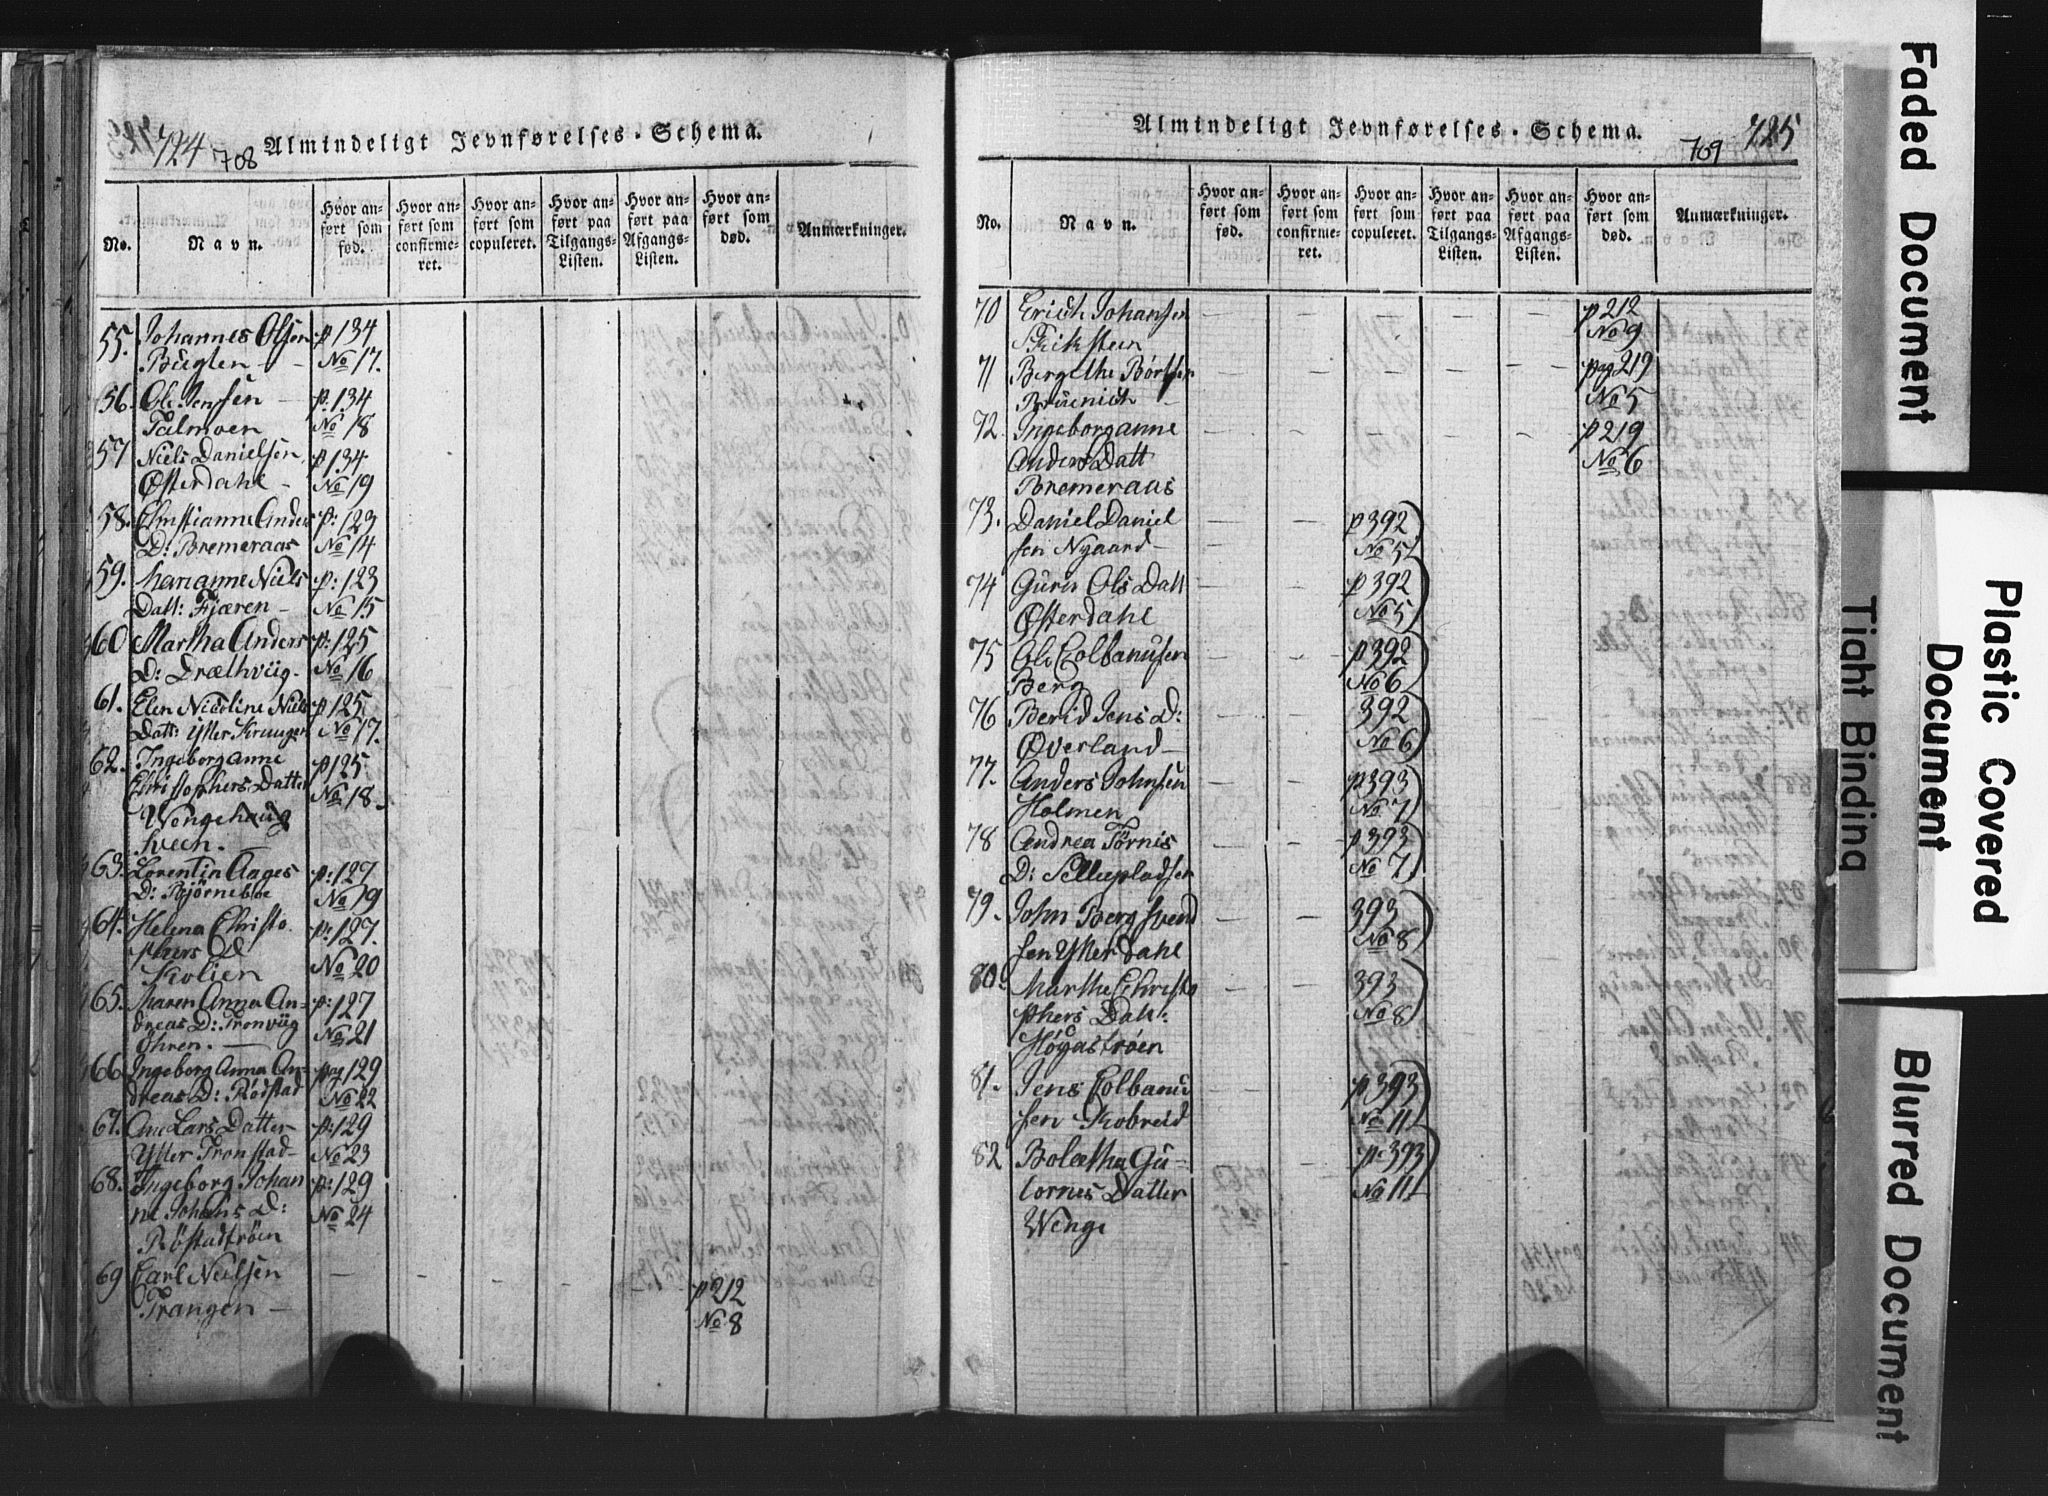 724 708 Almindeligt Jevnførelses-Schema.
No.
Navn.
Hvor anført som fød.
Hvor anført som confirmeret.
Hvor anført som copuleret.
Hvor anført paa Tilgangs-Listen.
Hvor anført paa Afgangs-Listen.
Hvor anført som død.
Anmærkninger.
55. Johannes Olsen p 134
Buglen - - No 17.
56. Ole Jensen - p. 134
Talmoen No 18
57 Niels Danielsen p 134
Østerdahl - No 19
58. Christianne Anders p: 123
D: Bremeraas No 14
59. Marianne Niels p: 123
Datt: Fjæren - No 15
60 Martha Anders p: 125
D: Trælhviig. No 16
61. Elen Nicoline Niels p 125
Datt: Ytter Krungen No 17.
62. Ingeborganne p 125
Christophers Datter No 18.
Wengehaug
Sveen.
63. Lorentin Aages p: 127
D: Bjørneboe No 19
64. Helena Christo p: 127.
phers D
Kolien No 20
65. Maren Anna An- p: 127
dreas D: Tronviig No 21
Öhren.
66 Ingeborg Anna An- pag 129
dreas D: Rødstad No 22
67. Ane Lars Datter p: 129
Ytter Tronstad - No 23
68. Ingeborg Johan p: 129
ne Johans D: No 24
Røstadtrøen
69 Carl Neilsen - - - p 212
Trangen - No 8
Almindeligt Jevnførelses-Schema. 709 725
No.
Navn.
Hvor anført som fød.
Hvor anført som confirmeret.
Hvor anført som copuleret.
Hvor anført paa Tilgangs-Listen.
Hvor anført paa Afgangs-Listen.
Hvor anført som død.
Anmærkninger.
70 Erich Johansen - - - - - p 212
No 9
71 Bergethe Børtsen - - - - - pag 219
Brüenich - No 5
72. Ingeborganne - - - - - p 219
Anders Datt No 6
Bremeraas
73. Daniel Daniel - - p 392
sen Nygaard - - No 5
74 Guru Ols Datt - - p 392
Østerdahl No 5
75 Ole Colbanusen - - p 392
Berg No 6
76 Berid Jens D: - - 392
Øverland - No 6
77. Anders Johnsen - - p 393
Holmen No 7
78 Andrea Tørris - - p 393
D: Selliepladsen No 7
79. John Berg Svend - - 393
sen Ytterdahl No 8
80. Marthe Christo - - 393
phers Datt: No 8
Högastrøen
81. Jens Colbanu - - p 393
sen Kobreid No 11
82 Boletha Gu- - p: 393
tornes Datter No 11
Wenge
Faded Document
Tight Binding
Plastic Covered
Document
Blurred Document